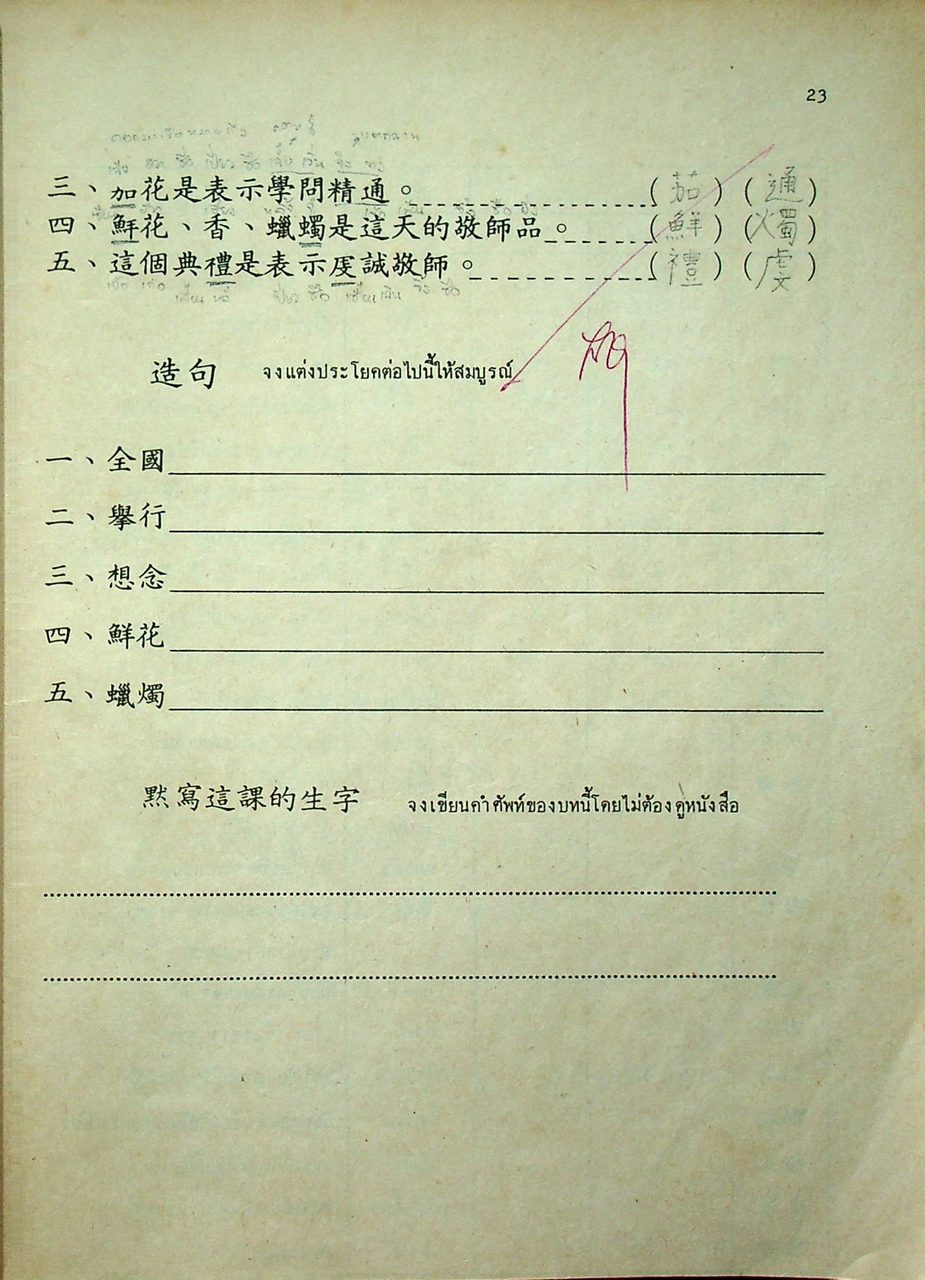 23
三、加花是表示學問精通。(茄)(通)
四、鮮花、香、蠟蠋是這天的敬師品。(鮮)(燭)
五、這個典禮是表示虔誠敬師。(禮)(虔)
造句 จงแต่งประโยคต่อไปนี้ให้สมบูรณ์
一、全國
二、舉行
三、想念
四、鮮花
五、蠟燭
默寫這課的生字 จงเขียนคำศัพท์ของบทนี้โดยไม่ต้องดูหนังสือ